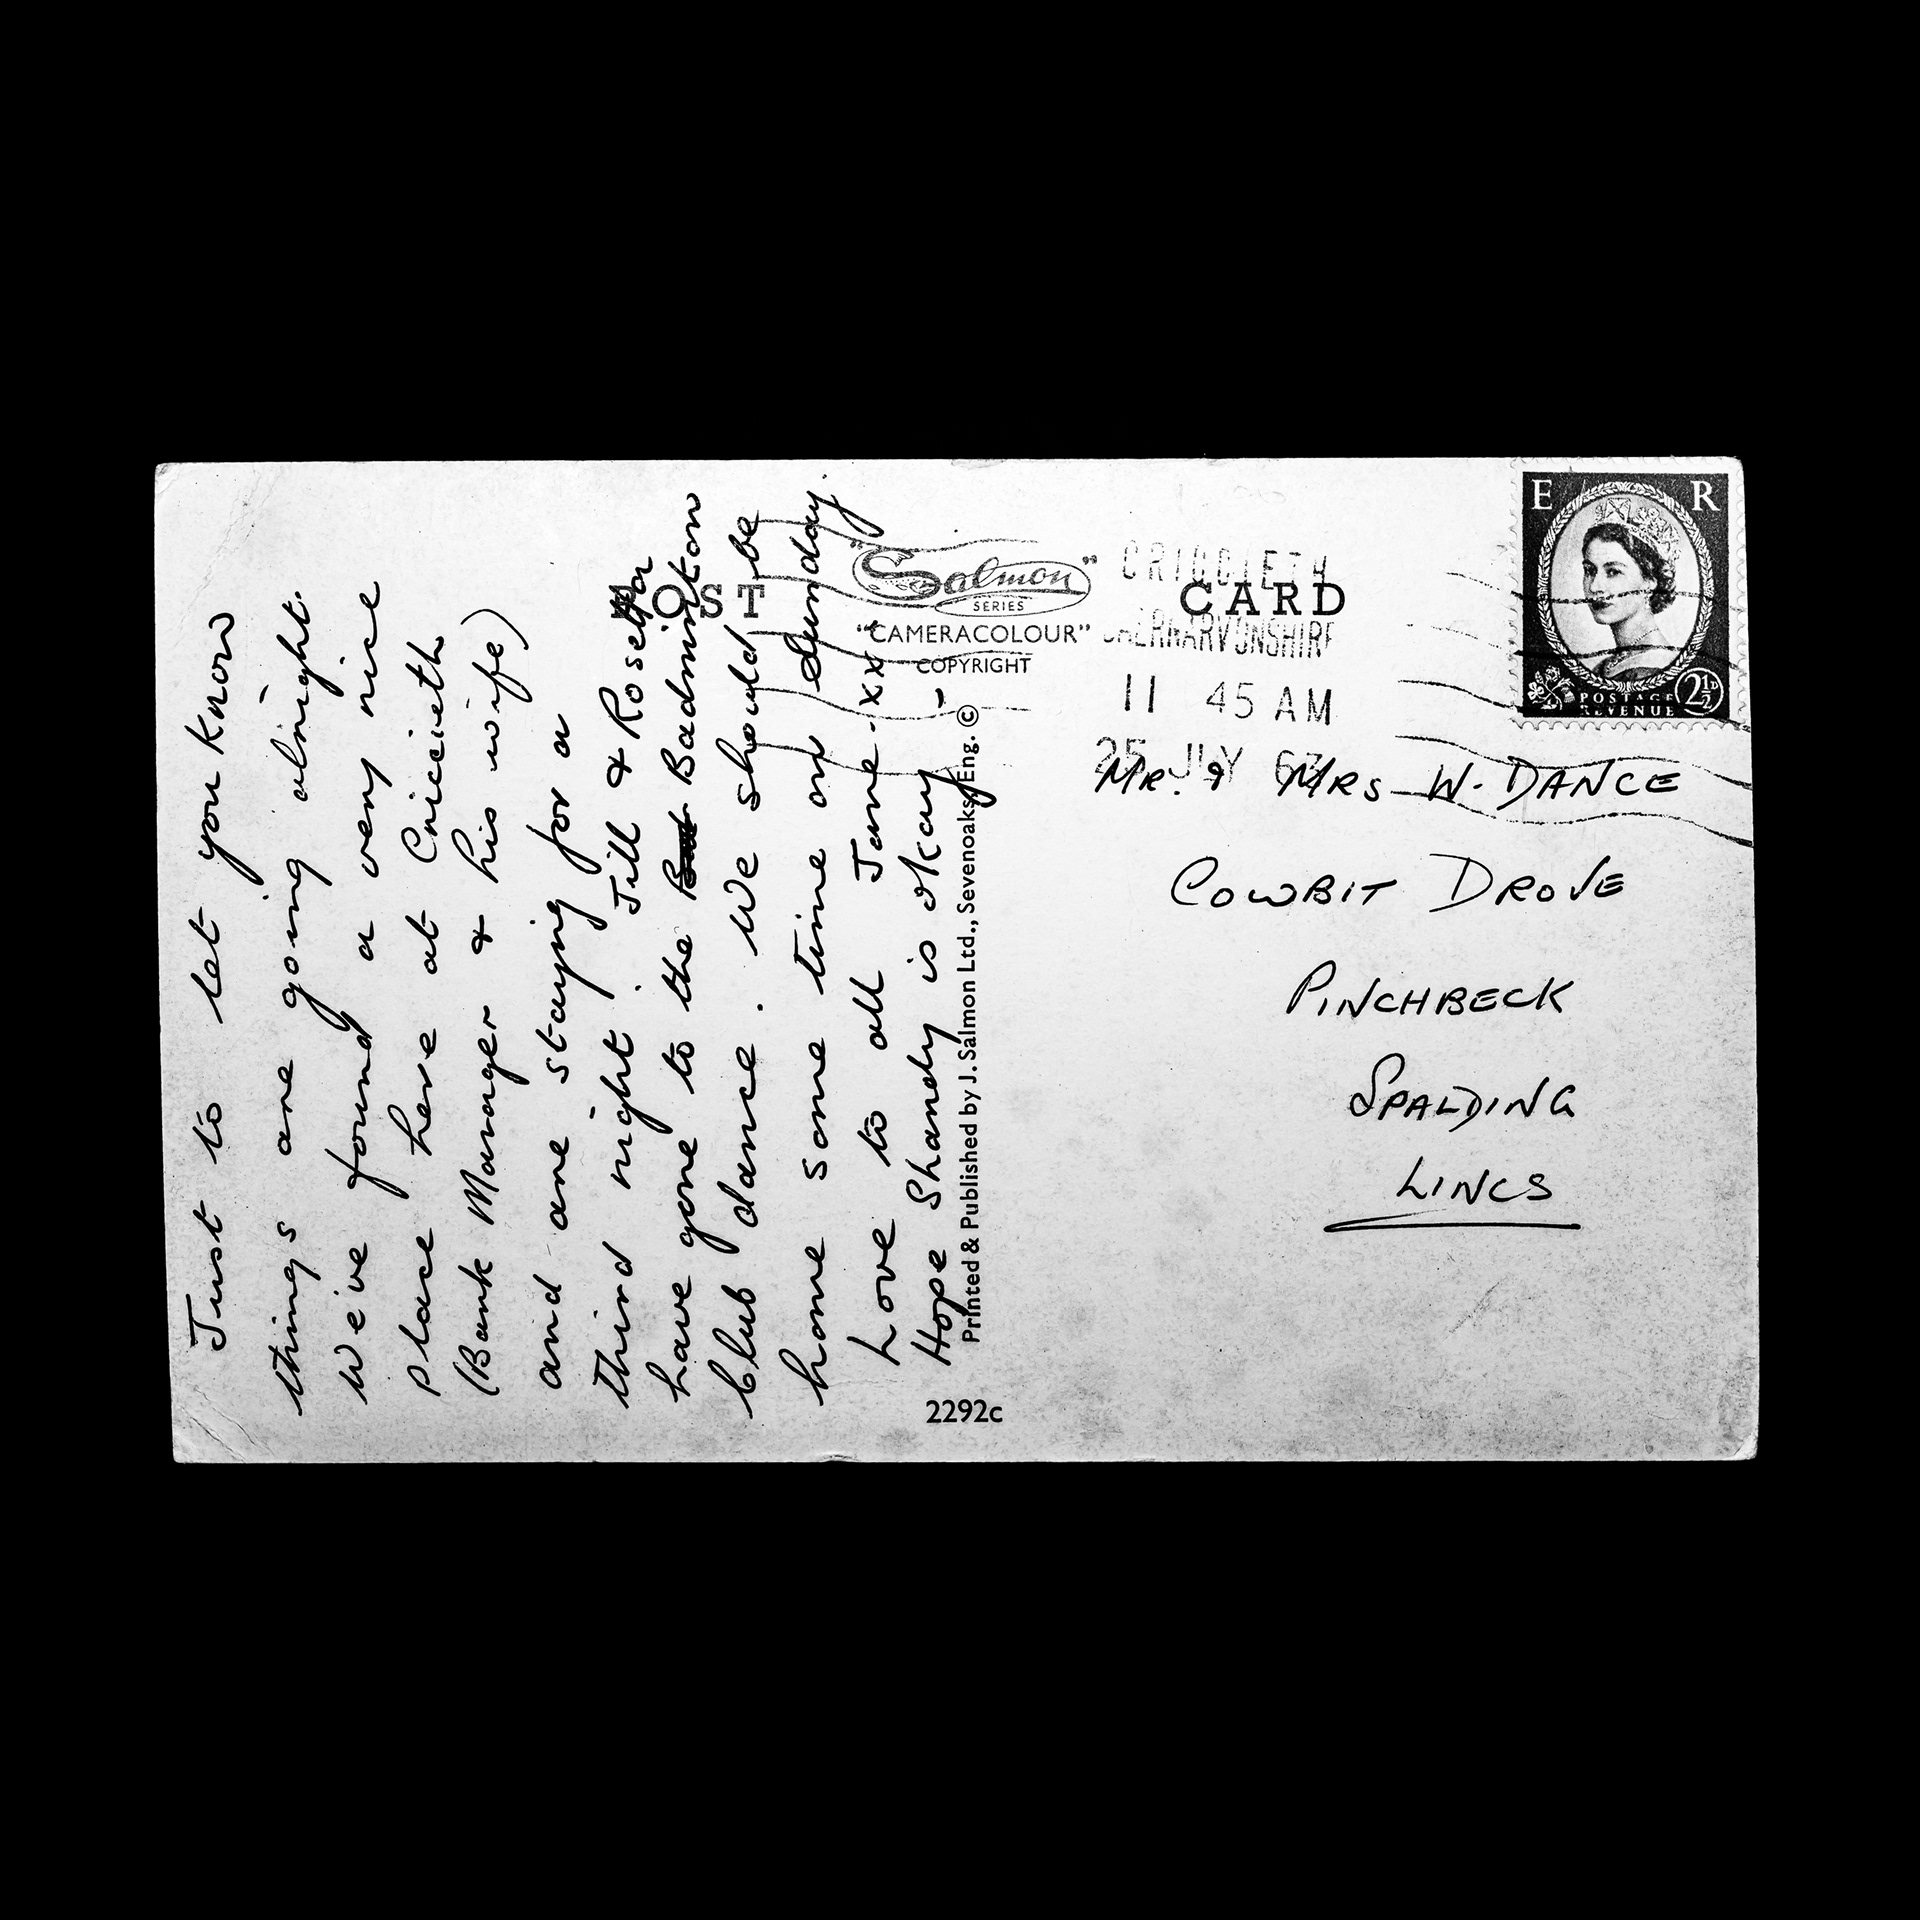 Just to let you know
things are going alright.
We've found a very nice
place here at Criccieth
(Bank Manager & his wife)
and are staying for a
third night. Jill & Rosetta
have gone to the Badminton
Club dance. We should be
home some time on Sunday.
Love to all Jane. xxx
Hope Shandy is okay -
POST CARD
"Salmon"
SERIES
"CAMERACOLOUR"
COPYRIGHT
CRICCIETH
CAERNARVONSHIRE
11 45 AM
25 JLY
E R
POSTAGE
REVENUE
2½D
Printed & Published by J. Salmon Ltd., Sevenoaks, Eng. ©
2292c
MR. & MRS W. DANCE
COWBIT DROVE
PINCHBECK
SPALDING
LINCS